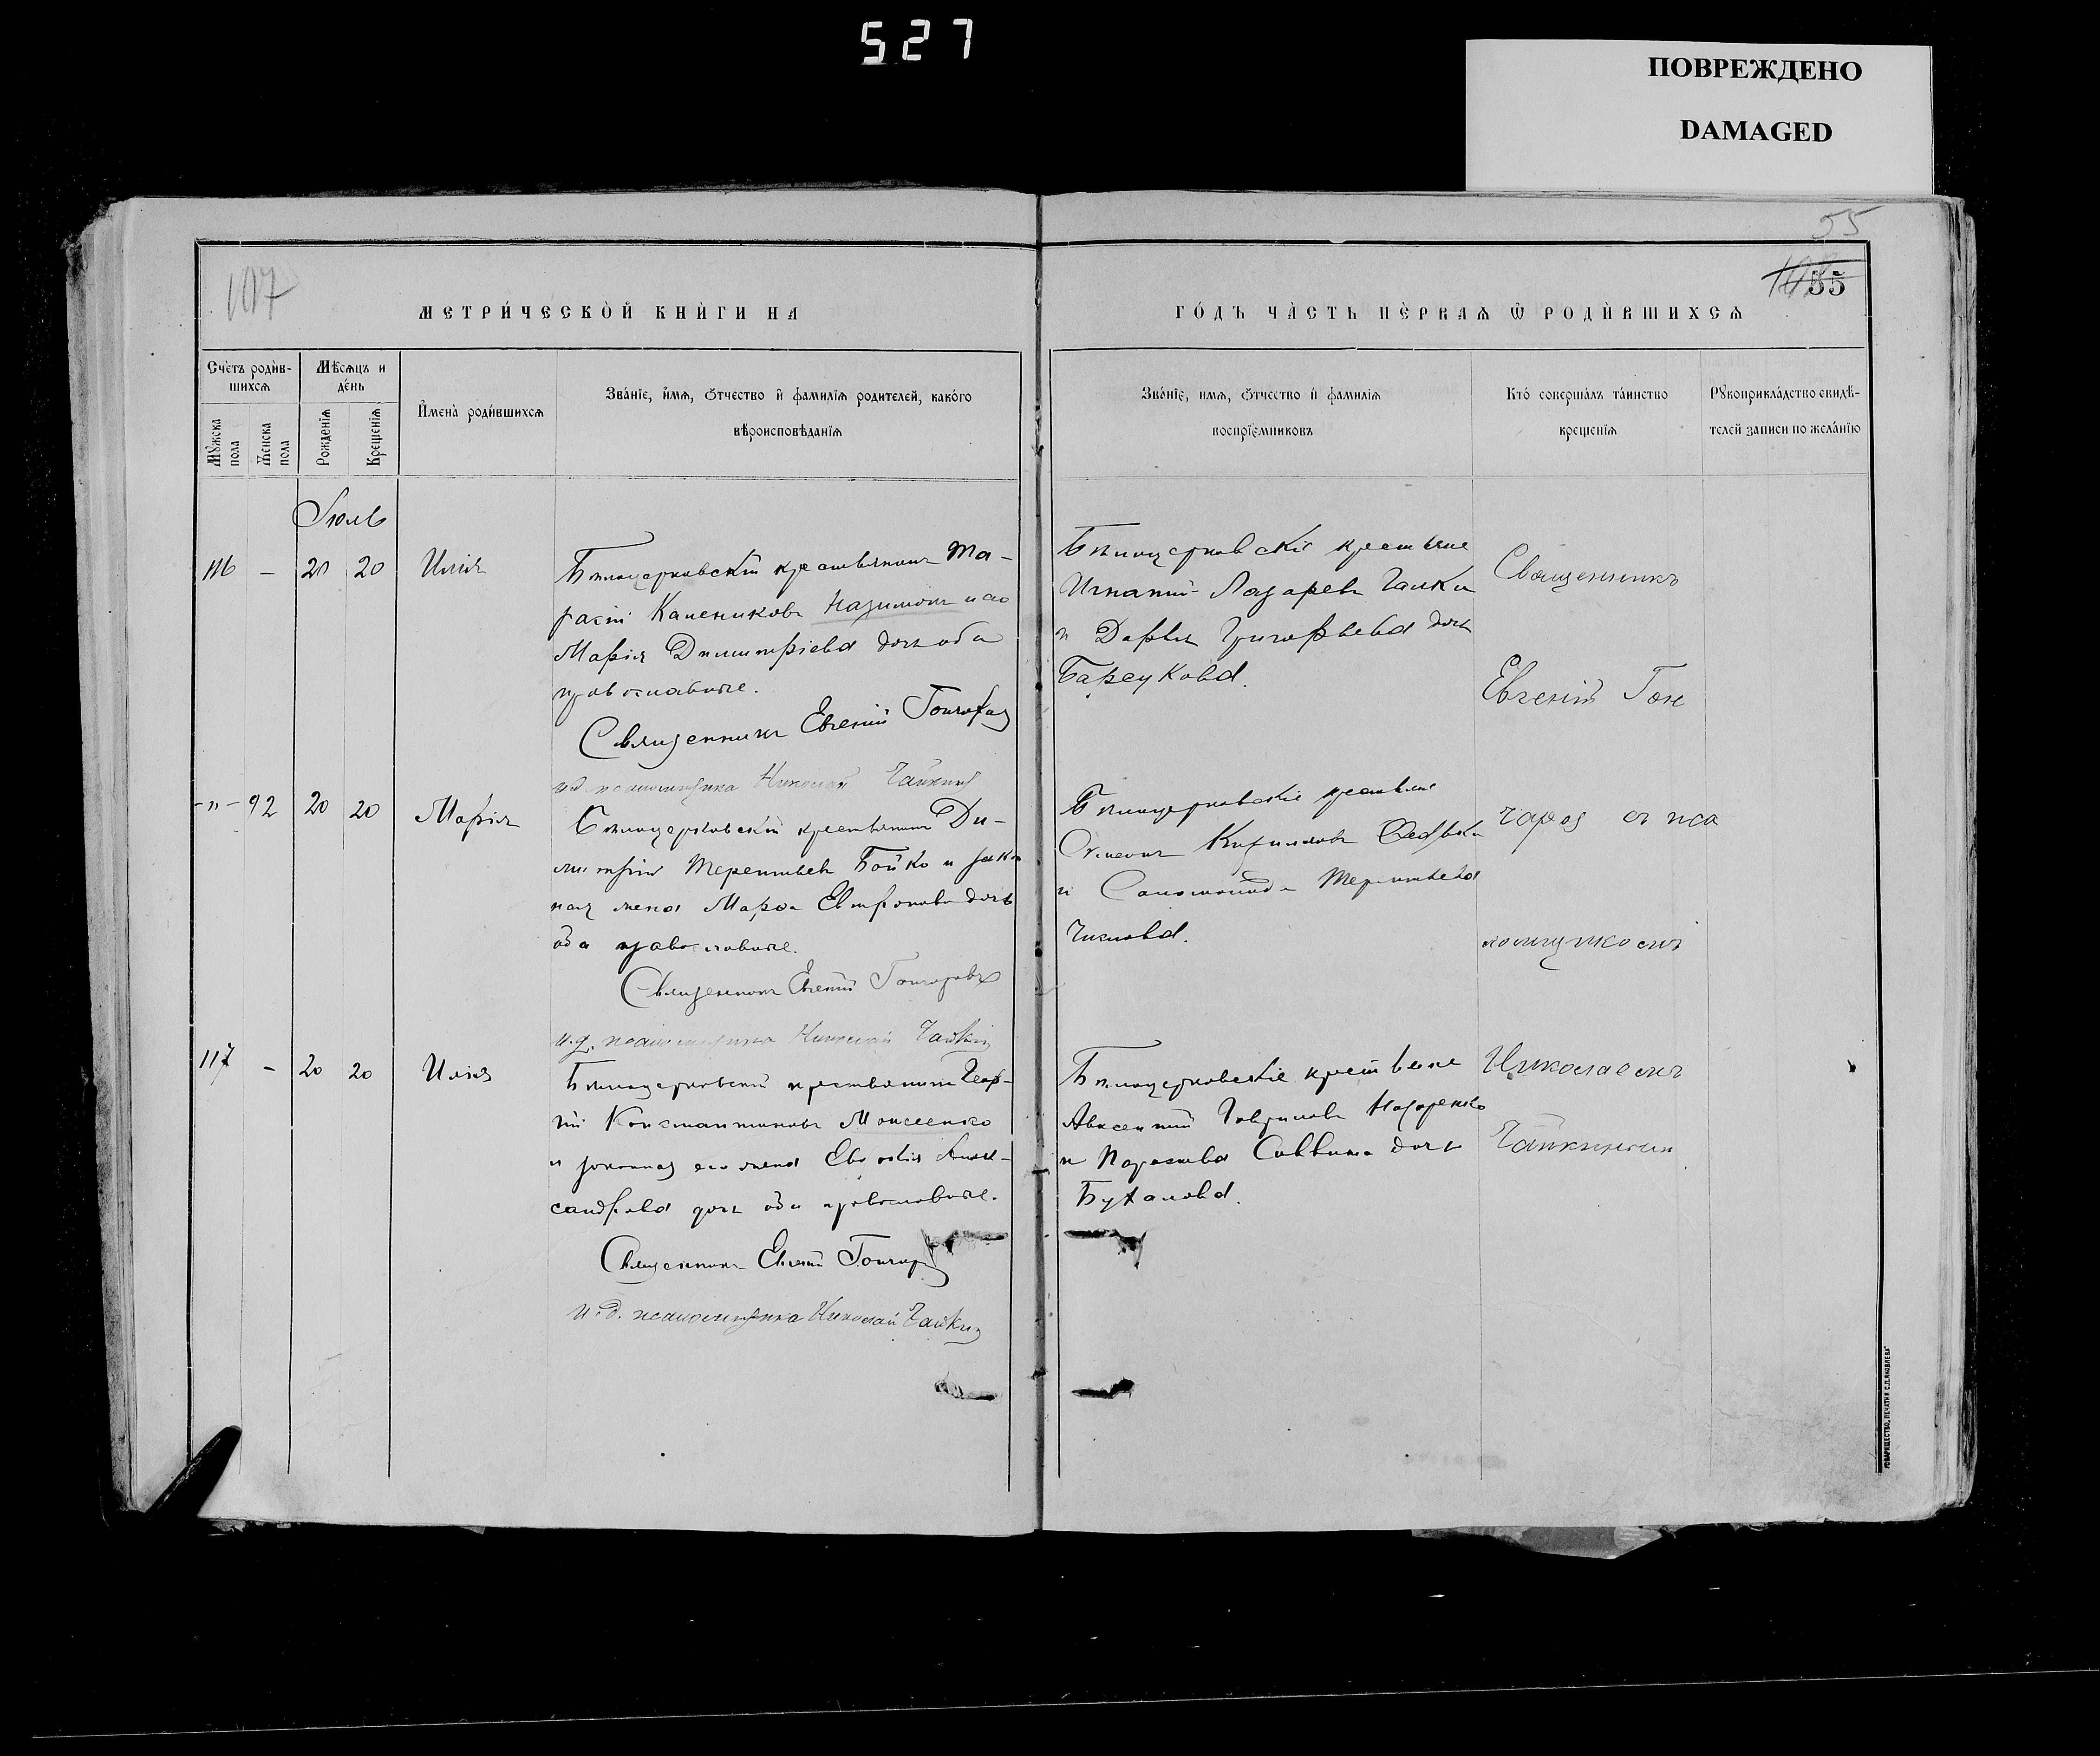 527
ПОВРЕЖДЕНО
DAMAGED
55
107
55
МЕТРИ́ЧЕСКОЙ КНИ́ГИ НА
ГО́ДЪ ЧА́СТЬ ПЕ́РВАѦ Ѿ РОДИ́ВШИХСѦ
Сче́тъ роди́в-
шихсѧ
Мѣ́сѧцъ и
де́нь
Мꙋ́жска
пола
Же́нска
пола
Рожде́нїѧ
Креще́нїѧ
И҆мена̀ роди́вшихсѧ
Зва́нїе, и҆́мѧ, ѻ҆́тчество и҆ фамилїѧ родителей, како́го
вѣроисповѣ́данїѧ
Зва́нїе, имѧ, ѻ҆́тчество и҆ фамилїѧ
воспрїе́мниковъ
Кто̀ соверша́лъ та́инство
креще́нїѧ
Рꙋкоприкла́дство свидѣ́-
телей записи по жела́нїю
Іюль
116 – 20 20 Илія
Бѣлоцерковскій крестьянинъ Та-
расій Калениковъ Назимокъ и его
Марія Димитріева дочь оба
православные.
Священникъ Евгеній Гончаровъ
и.д. псаломщика Николай Чайкинъ
Бѣлоцерковскіе крестьяне
Игнатій Лазаревъ Галка
и Дарья Григорьева дочь
Барсукова.
Священникъ
Евгеній Гон
-"- 92 20 20 Марія
Бѣлоцерковскій крестьянинъ Ди-
митрій Терентьевъ Бойко и закон
ная жена Марфа Евтропова дочь
оба православные.
Священникъ Евгеній Гончаровъ
и.д. псаломщика Николай Чайкинъ
Бѣлоцерковскіе крестьяне
Симеонъ Кирилловъ
и Соломонида Терентьева
чаровъ съ пса
ломщикомъ
117 – 20 20 Илія
Бѣлоцерковскій крестьянинъ Геор-
гій Константиновъ Моисеенко
и законная его жена Евдокія Алек-
сандрова дочь оба православные.
Священникъ Евгеній Гончаровъ
и.д. псаломщика Николай Чайкинъ
Бѣлоцерковскіе крестьяне
Авксентій Гавриловъ Назаренко
и Параскева Саввина дочь
Бухалова.
Николаемъ
Чайкинымъ
ТОВАРИЩЕСТВО „ПЕЧАТНЯ С.П.ЯКОВЛЕВА"